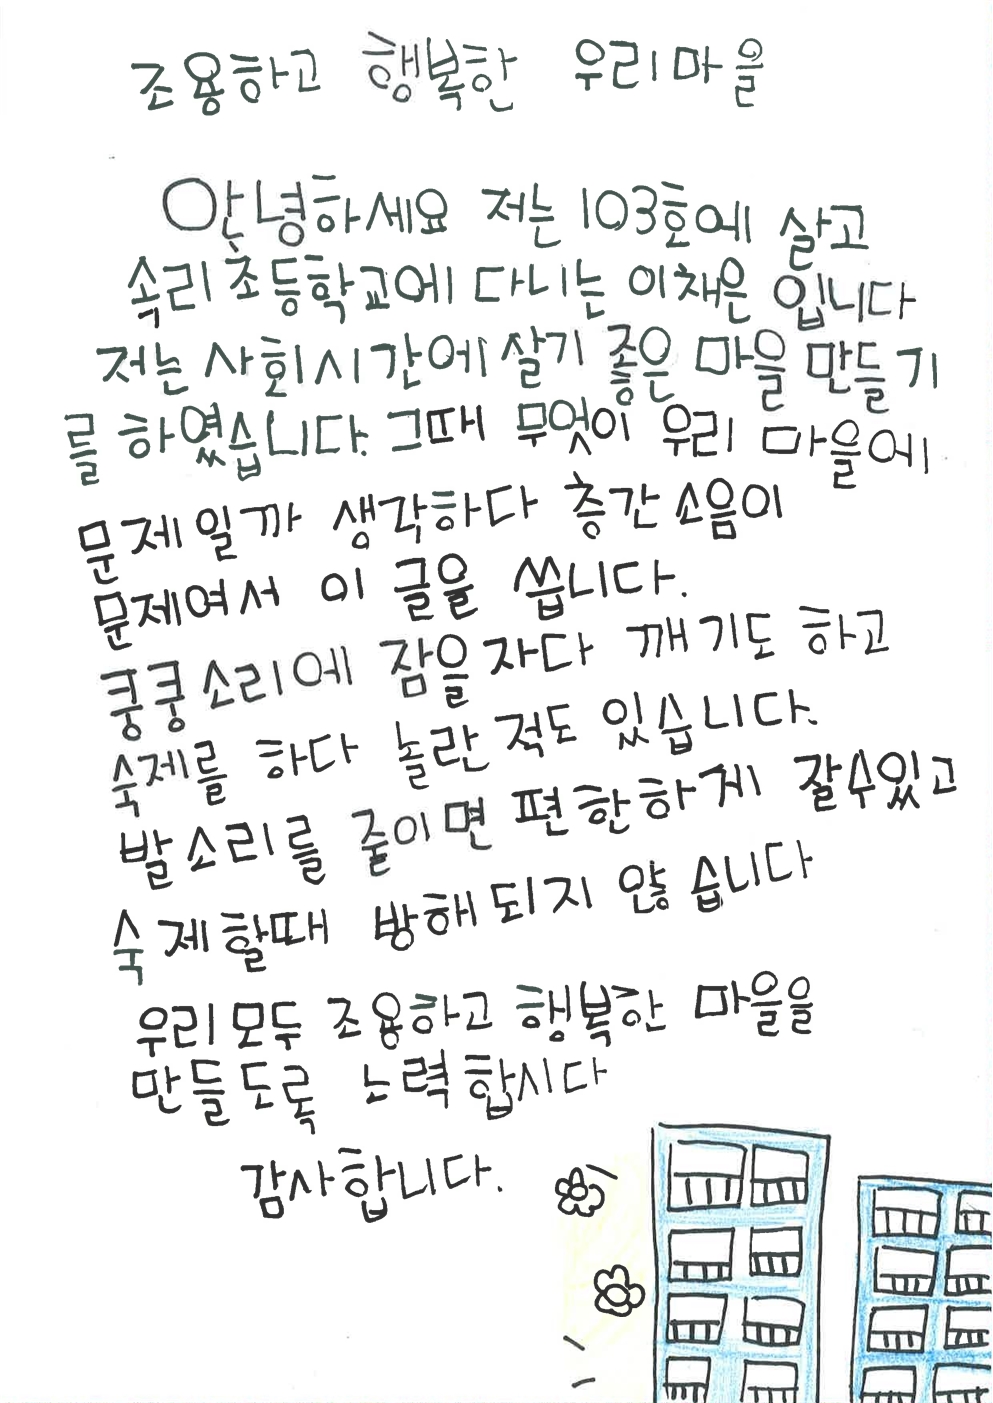 조용하고 행복한 우리마을
안녕하세요 저는 103호에 살고
속리초등학교에 다니는 이채은 입니다
저는 사회시간에 살기 좋은 마을 만들기
를 하였습니다. 그때 무엇이 우리 마을에
문제일까 생각하다 층간소음이
문제여서 이 글을 씁니다.
쿵쿵소리에 잠을자다 깨기도 하고
숙제를 하다 놀란적도 있습니다.
발소리를 줄이면 편한하게 잘수있고
숙제할때 방해되지 않습니다
우리모두 조용하고 행복한 마을을
만들도록 노력합시다
감사합니다.